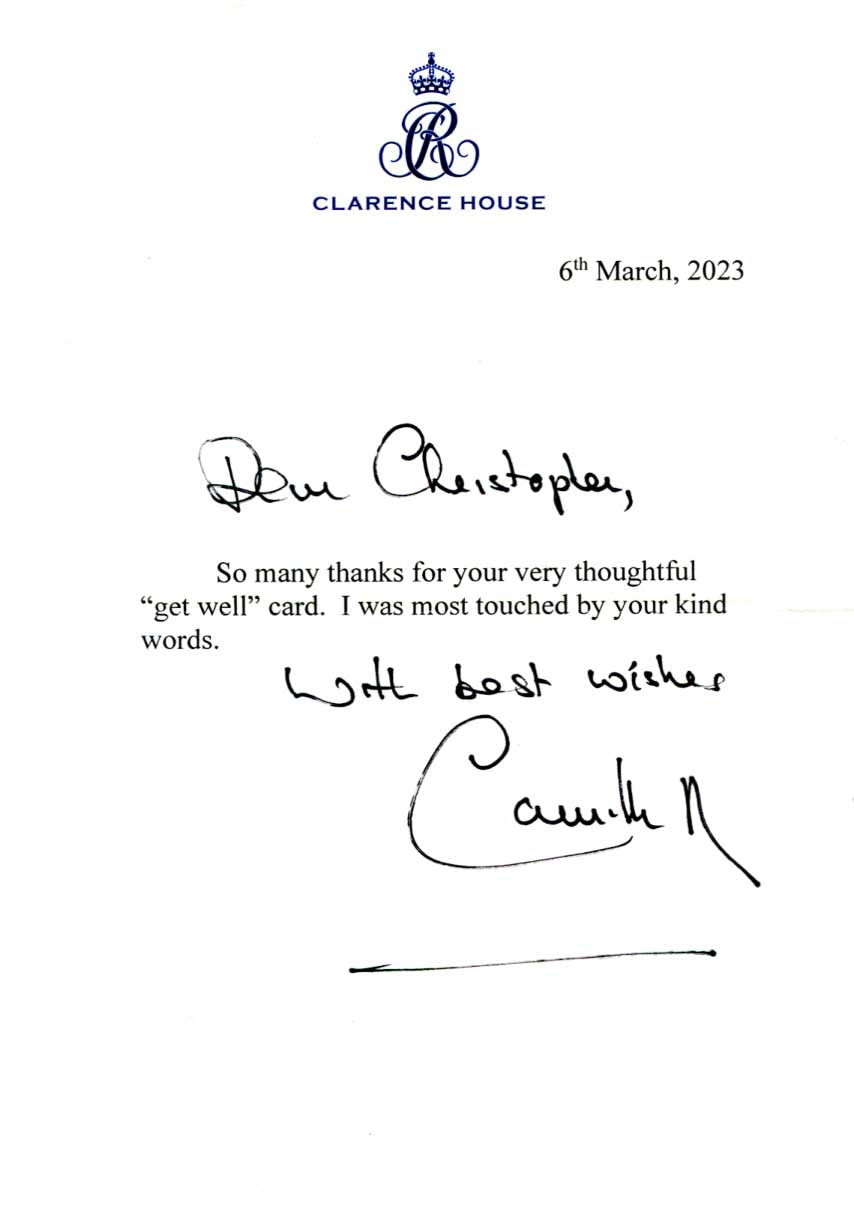 CR
CLARENCE HOUSE
6th March, 2023
Dear Christopher,
So many thanks for your very thoughtful
“get well” card.  I was most touched by your kind
words.
With best wishes
Camilla R